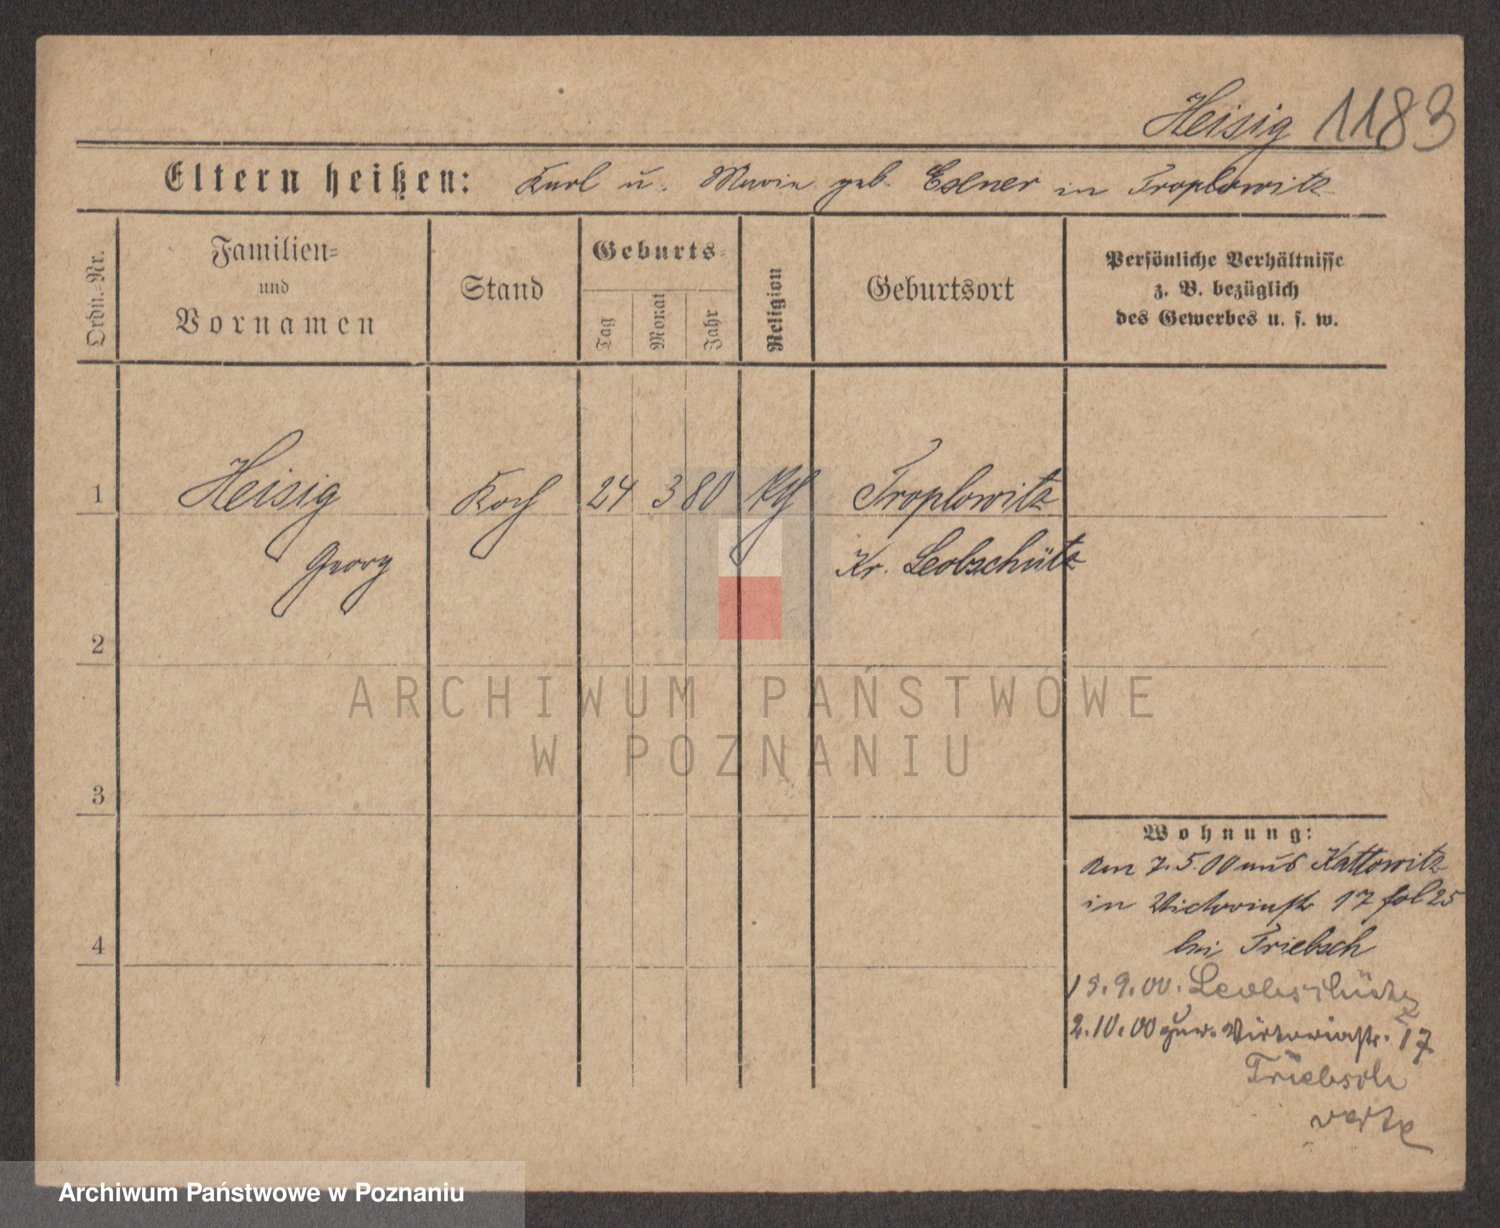 Heisig 1183
Eltern heißen: Karl u. Marie geb. Eslner in Troplowitz
Ordn.-Nr.
Familien-
und
Vornamen
Stand
Geburts-
Tag
Monat
Jahr
Religion
Geburtsort
Persönliche Verhältnisse
z. B. bezüglich
des Gewerbes u. s. w.
1
Heisig
Georg
Koch
24 3 80
kth
Troplowitz
Kr. Leobschütz
2
3
4
Wohnung:
am 7.5.00 aus Kattowitz
in Victoriastr 17 fol 25
bei Triebsch
15.9.00. Leobschütz
2.10.00 zur. Victoriastr. 17
Triebsch
verte
ARCHIWUM PAŃSTWOWE
W POZNANIU
Archiwum Państwowe w Poznaniu